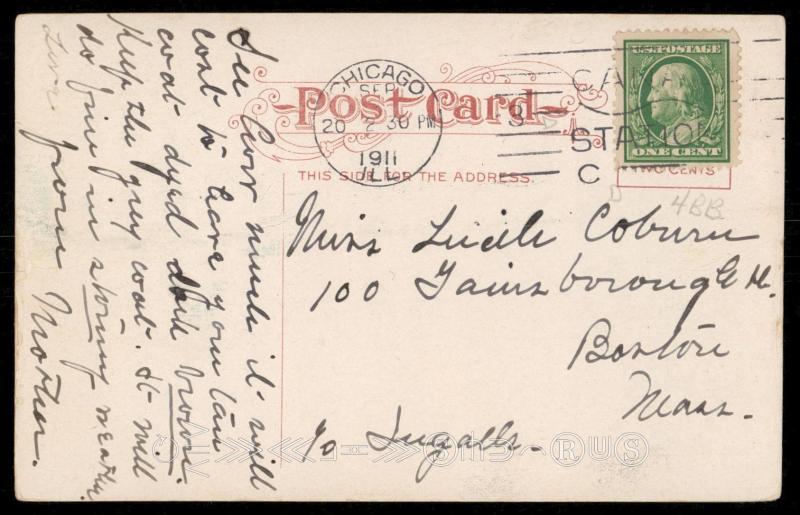 See how much it will
cost to have your tan
coat dyed dark brown.
Keep the grey coat. It will
do fine in stormy weather.
Love from Mother.
Post Card
THIS SIDE FOR THE ADDRESS.
CHICAGO
SEP
20 2 30 PM
1911
ILL.
U.S. POSTAGE
ONE CENT
TWO CENTS
4BB
Miss Lucile Coburn
100 Gainsborough St.
Boston
Mass.
c/o Ingalls.
RUS